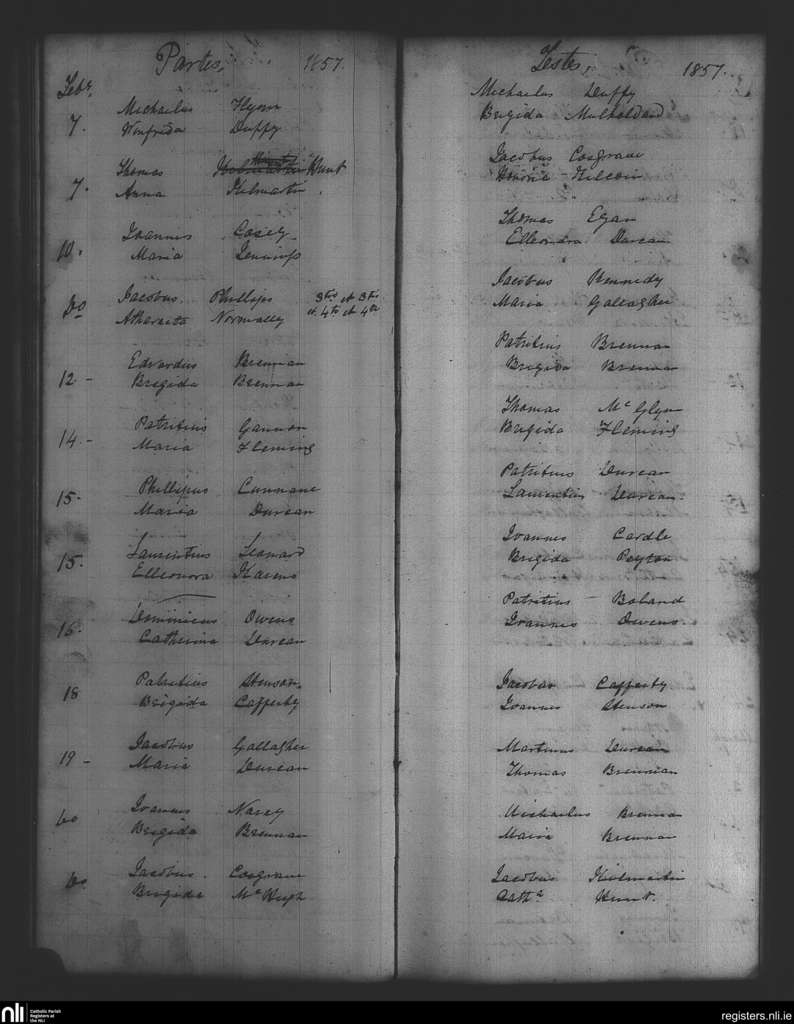 Partes, 1857.
Feby.
7. Michaelus Flynn
Winfrida Duffy
7. Thomas Hunt
Anna Kilmartin
10. Joannes Casey
Maria Jennings
Do Jacobus Phillips 3tio et 3tio
Norvnalley et 4to et 4to
12 - Edvardus Brennan
Brigida Brennan
14 - Patritius Gannon
Maria Fleming
15. Phillipus Cunnane
Maria Durcan
15. Laurentius Leonard
Elleonora Kearns
16. Dominicus Owens
Catherina Durcan
18 Patritius Stenson
Brigida Cafferty
19 - Jacobus Gallagher
Maria Durcan
Do Joannes Narey
Brigida Brennan
Do Jacobus Cosgrave
Brigida McHugh
Testes, 1857.
Michaelus Duffy
Brigida Mulholland
Jacobus Cosgrave
Honoria Kilcoin
Thomas Egan
Elleonora Durcan
Jacobus Kennedy
Maria Gallagher
Patritius Brennan
Brigida Brennan
Thomas McGlyn
Brigida Fleming
Patritius Durcan
Laurentius Durcan
Joannes Cardle
Brigida Peyton
Patritius Boland
Joannes Owens.
Jacobus Cafferty
Joannes Stenson
Martinus Durcan
Thomas Brennan
Michaelus Brennan
Maria Brennan
Jacobus Kilmartin
Catha Hunt.
nli Catholic Parish
Registers at
the NLI
registers.nli.ie